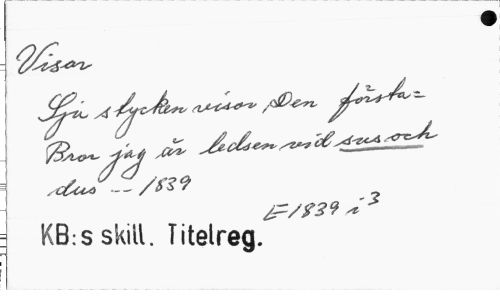 Visor
Sju stycken visor, Den första=
Bror jag är ledsen vid sus och
dus -- 1839
E 1839 i 3
KB:s skill. Titelreg.